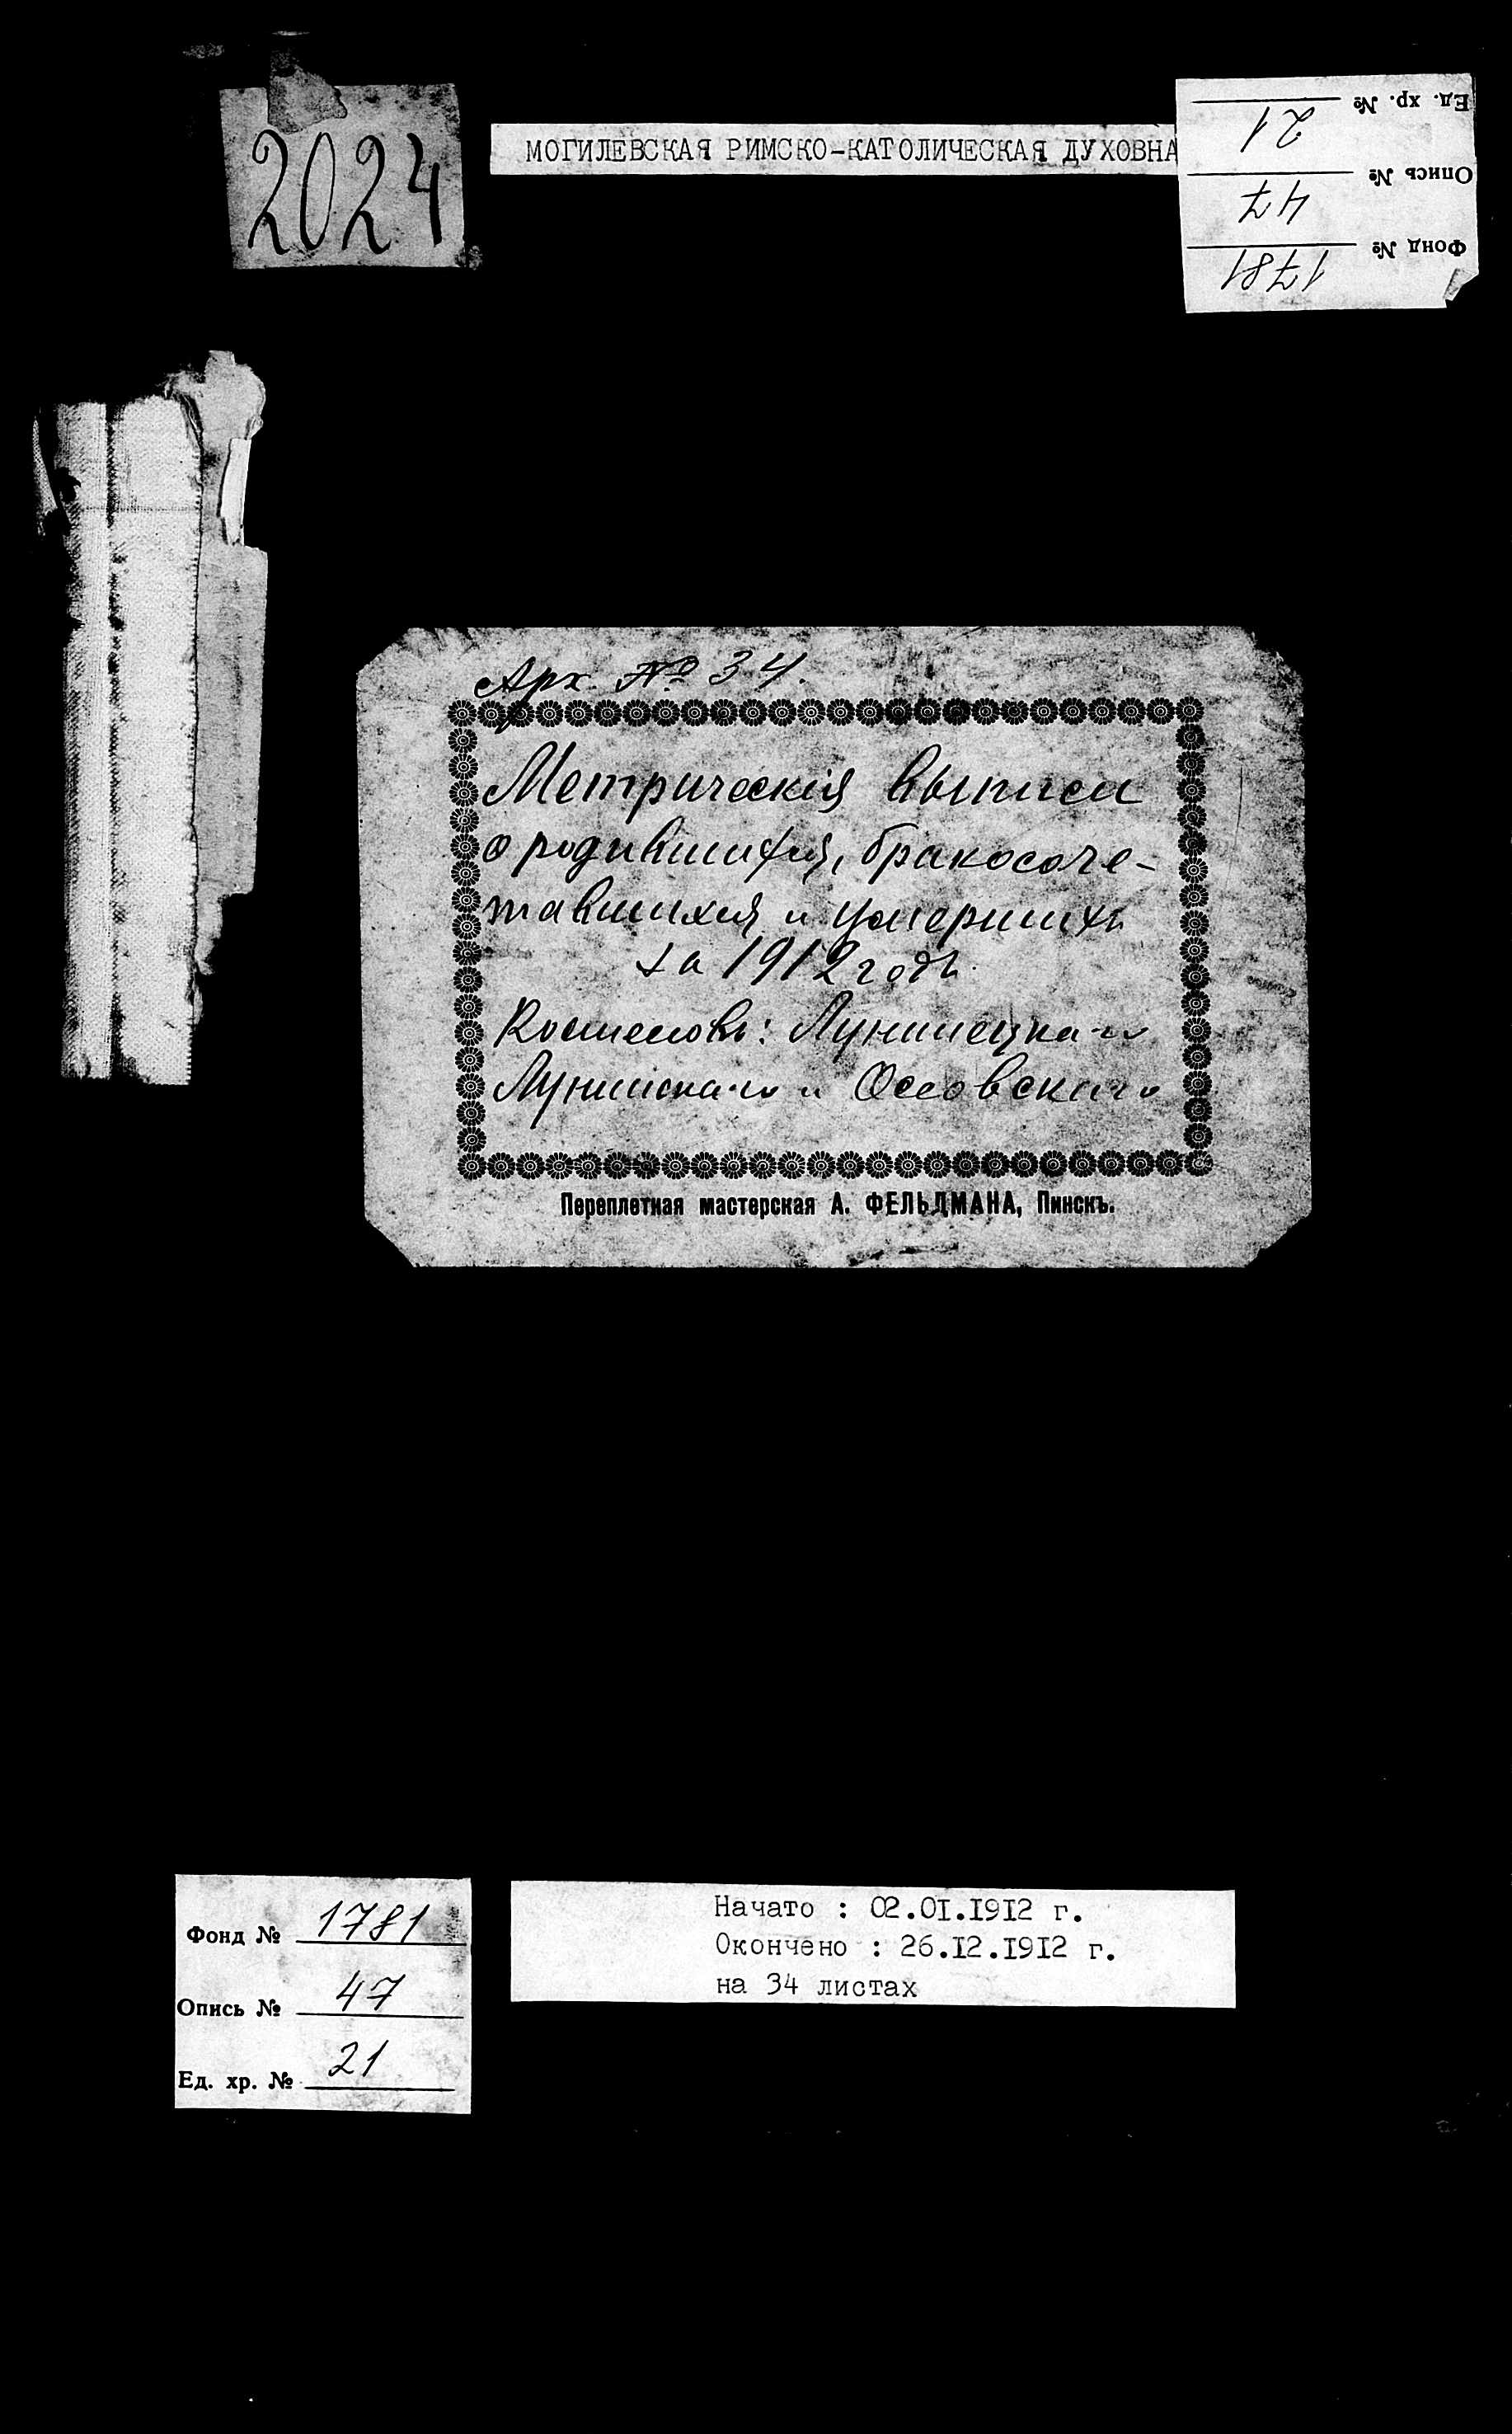 2024
МОГИЛЕВСКАЯ РИМСКО-КАТОЛИЧЕСКАЯ ДУХОВНА
Ед. хр. № 21
Опись № 47
Фонд № 1781
Арх. № 34.
Метрическія выписи
о родившихся, бракосоче-
тавшихся и умершихъ
за 1912 годъ.
Костеловъ: Лунинецкаго
Лунинскаго и Оссовскаго
Переплетная мастерская А. ФЕЛЬДМАНА, Пинскъ.
Фонд № 1781
Опись № 47
Ед. хр. № 21
Начато : 02.0I.I9I2 г.
Окончено : 26.I2.I9I2 г.
на 34 листах